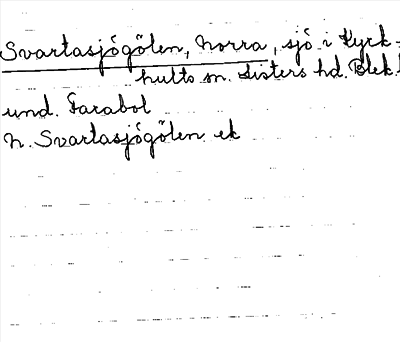 Svartasjögölen, Norra, sjö i Kyrk-
hults sn. Listers hd. Blek.l
und. Farabol
N. Svartasjögölen ek